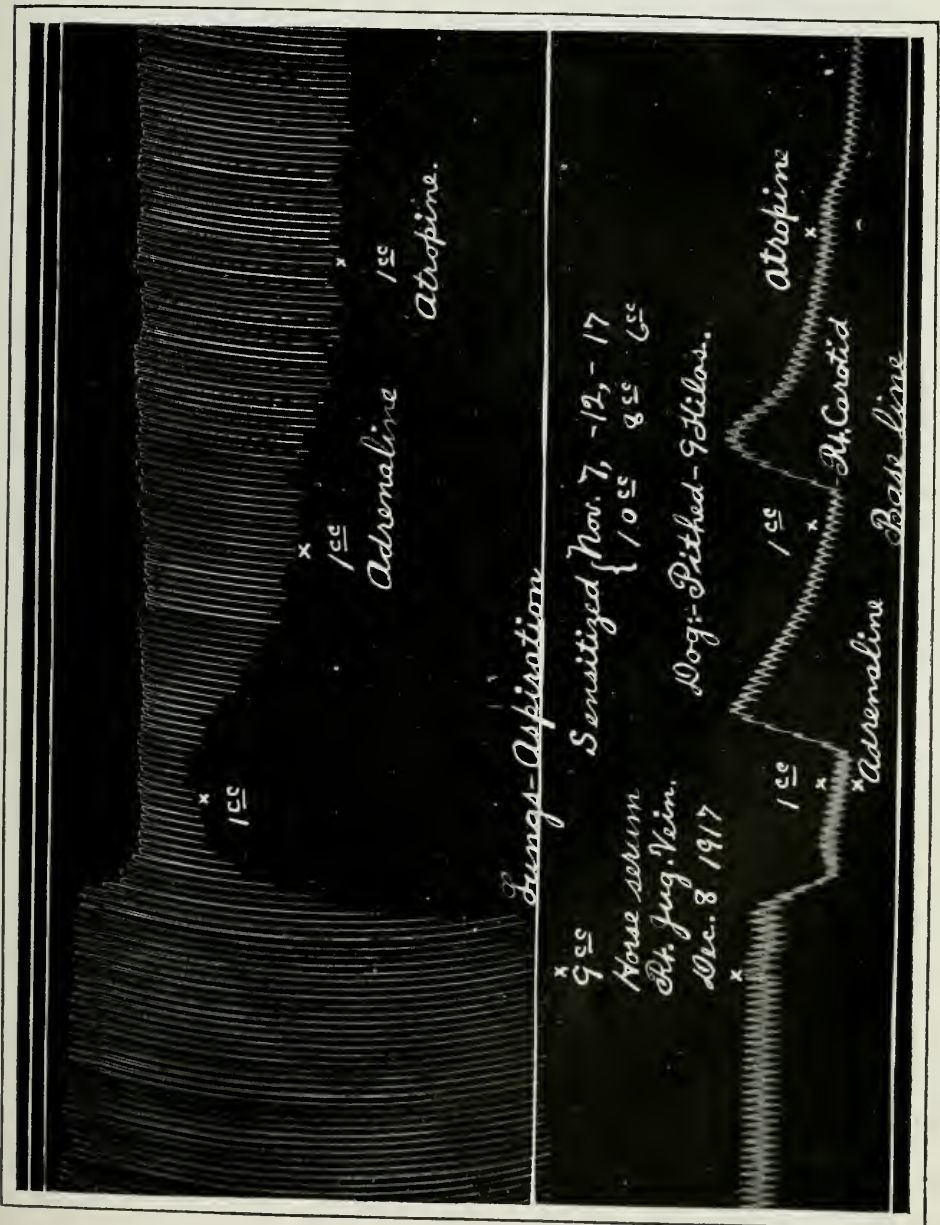 1cc
1cc
Adrenaline
1cc
Atropine.
Lungs-Aspiration
9cc
Horse serum
Rt. Jug. Vein.
Dec. 8 1917
Sensitized { Nov. 7, -12, -17
10cc 8cc 6cc
Dog:- Pithed-9 Kilos.
1cc
1cc
Atropine
Rt. Carotid
Adrenaline
Base line